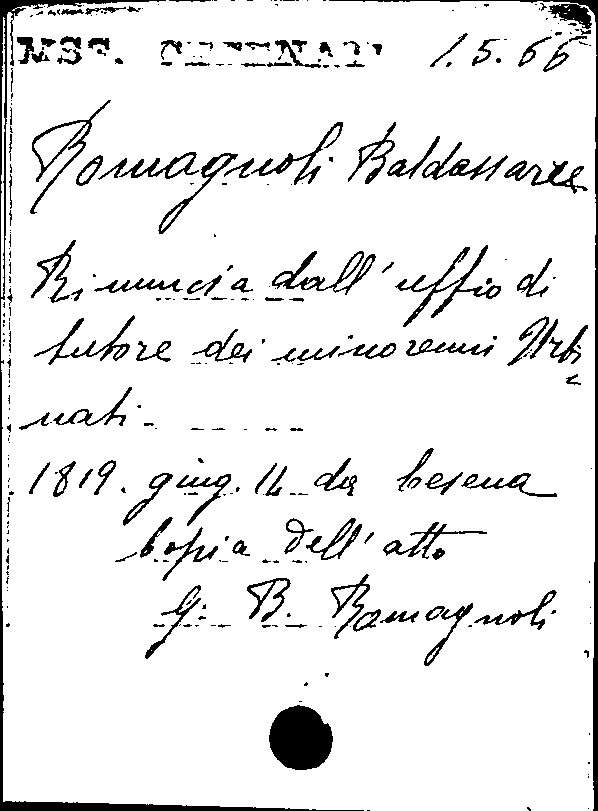 MSS. CESENATI 1.5.66
Romagnoli Baldassarre
Rinuncia dall'uffio di
tutore dei minorenni Urbi
nati-
1819. giug. 14 da Cesena
Copia dell'atto
G. B. Romagnoli